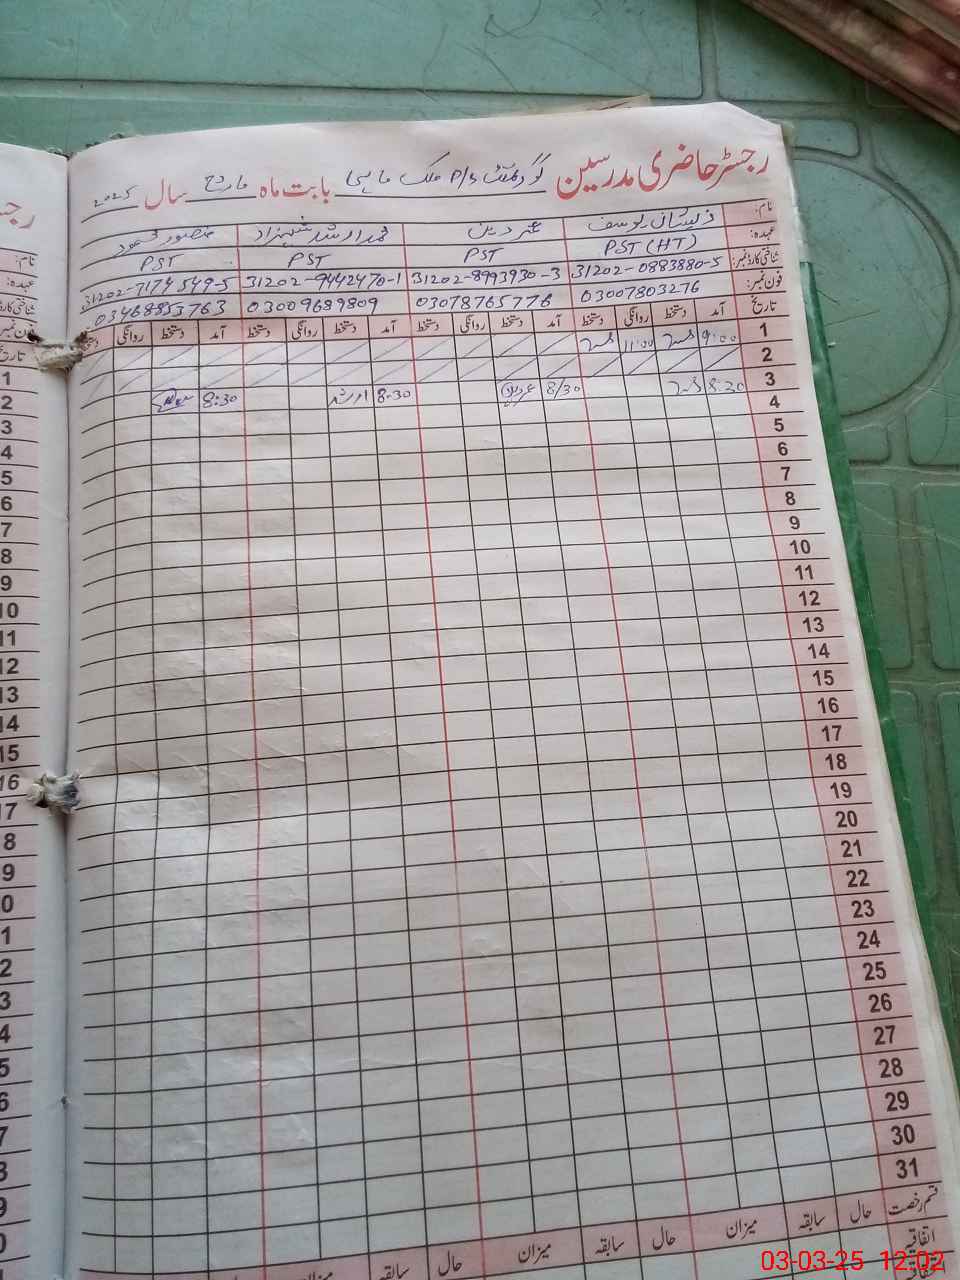 رجسٹر حاضری مدرسین گورنمنٹ P/S ملک ماہی بابت ماہ مارچ سال 2025
نام: ذیشان یوسف عمر دین محمد ارشد شہزاد منصور محمود
عہدہ: PST (HT) PST PST PST
شناختی کارڈ نمبر: 31202-0883880-5 31202-8993930-3 31202-9442470-1 31202-7174549-5
فون نمبر: 03007803276 03078765776 03009689809 03468853763
تاریخ آمد دستخط روانگی دستخط آمد دستخط روانگی دستخط آمد دستخط روانگی دستخط آمد دستخط روانگی دستخط
1 9:00 11:00
2
3 8:30 8/30 8:30 ارشد 8:30
4
5
6
7
8
9
10
11
12
13
14
15
16
17
18
19
20
21
22
23
24
25
26
27
28
29
30
31
قسم رخصت حال سابقہ میزان حال سابقہ میزان حال سابقہ میزان
اتفاقیہ
03-03-25 12:02
رجسٹر
نام:
عہدہ:
فون نمبر
تاریخ
1
2
3
4
5
6
7
8
9
10
11
12
13
14
15
16
17